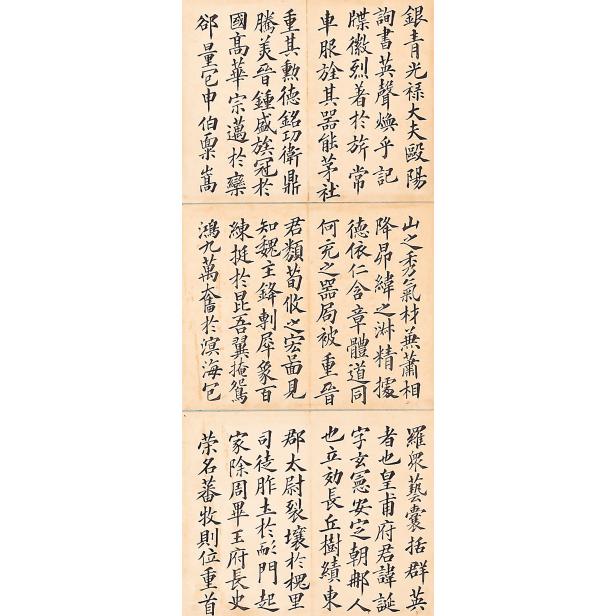 銀青光禄大夫毆陽
詢書英聲煥乎記
牒徽烈著於旂常
車服旌其器能茅社
重其勳德銘功衛鼎
騰美晉鍾盛族冠於
國髙華宗邁於欒
郤量包申伯稟嵩
山之秀氣材兼蕭相
降昴緯之淋精據
德依仁含章體道同
何充之器局被重晉
君類荀攸之宏啚見
知魏主鋒剸犀象百
練挺於昆吾翼掩鴛
鴻九萬奮於溟海包
羅衆藝囊括群英
者也皇甫府君諱誕
字玄憲安定朝那人
也立効長丘樹績東
郡太尉裂壤於槐里
司徒胙土於耏門起
家除周畢王府長史
榮名蕃牧則位重首